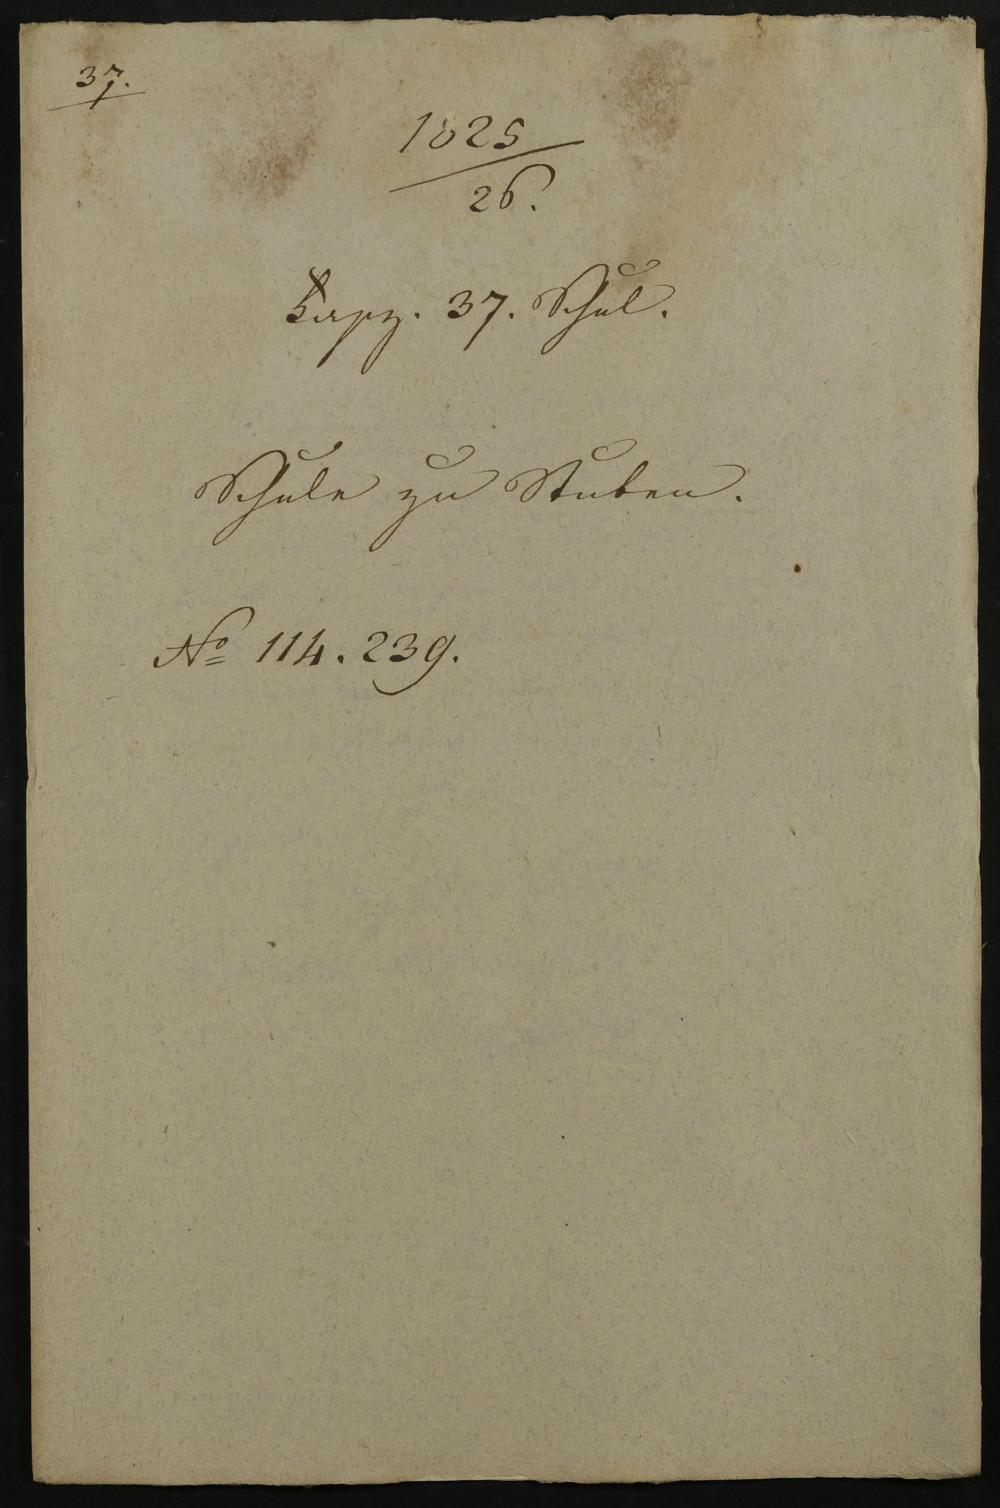 37.
1825
26.
Fasz. 37. Schul.
Schule zu Stuben.
No 114. 239.